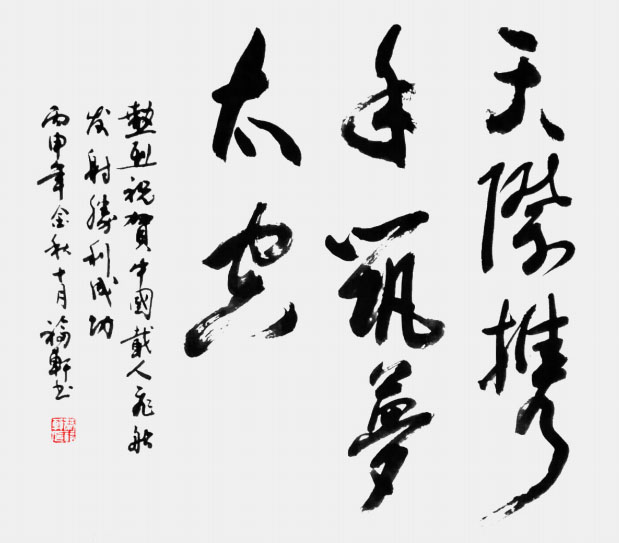 天際携
手筑夢
太空
热烈祝賀中國載人飛船
发射勝利成功
丙申年金秋十月福軒书